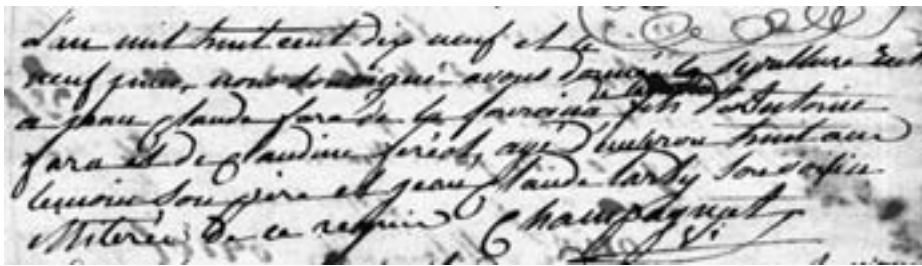 L'an mil huit cent dix neuf et le
neuf juin, nous soussigné avons donné la sepulture
a jean Claude fara de la fils d'Antoine
fara et de Claudine feréol, agé d'environ huit ans
temoin son père et jean Claude tardy son voisin
illiterés de ce requis Champagnat